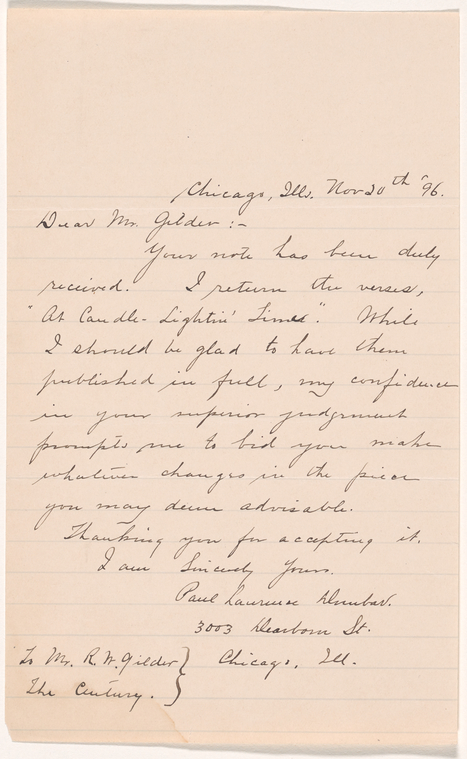 Chicago, Ills. Nov 20th '96.
Dear Mr. Gilder :-
Your note has been duly
received. I return the verses,
"At Candle-Lightin' Time". While
I should be glad to have them
published in full, my confidence
in your superior judgment
prompts me to bid you make
whatever changes in the piece
you may deem advisable.
Thanking you for accepting it.
I am Sincerely Yours.
Paul Laurence Dunbar.
3003 Dearborn St.
Chicago, Ill.
To Mr. R. W. Gilder
The Century.